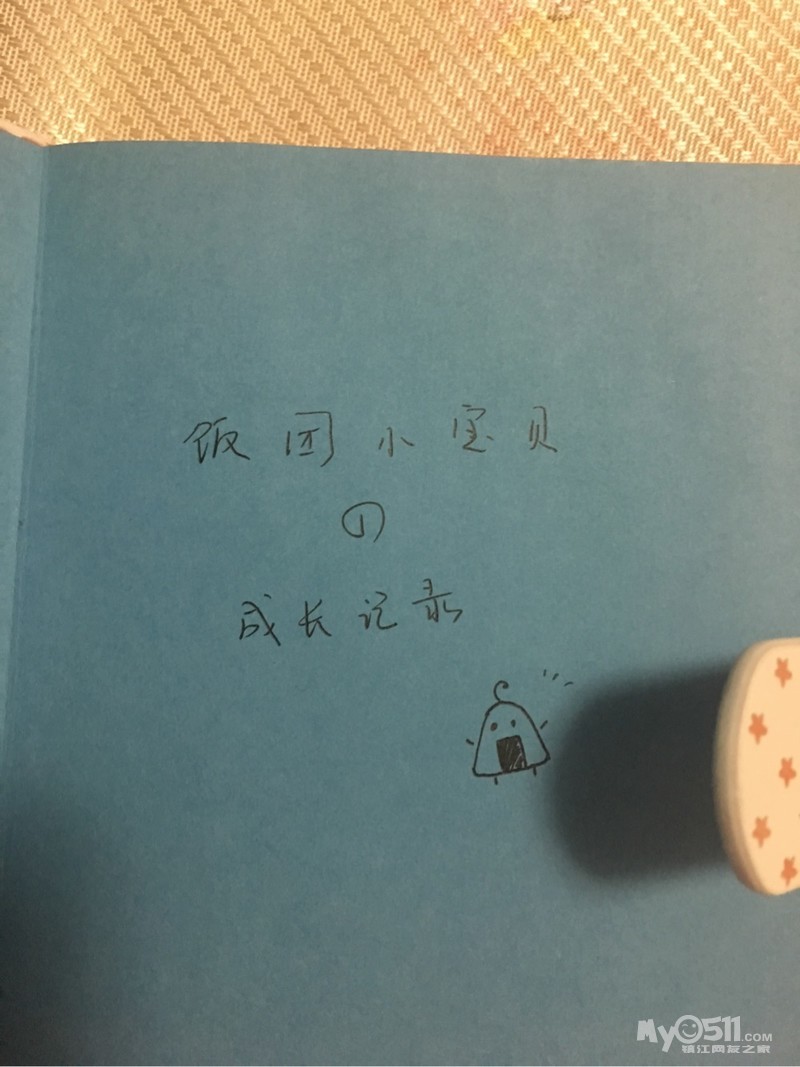 饭团小宝贝
の
成长记录
My0511.COM
镇江网友之家